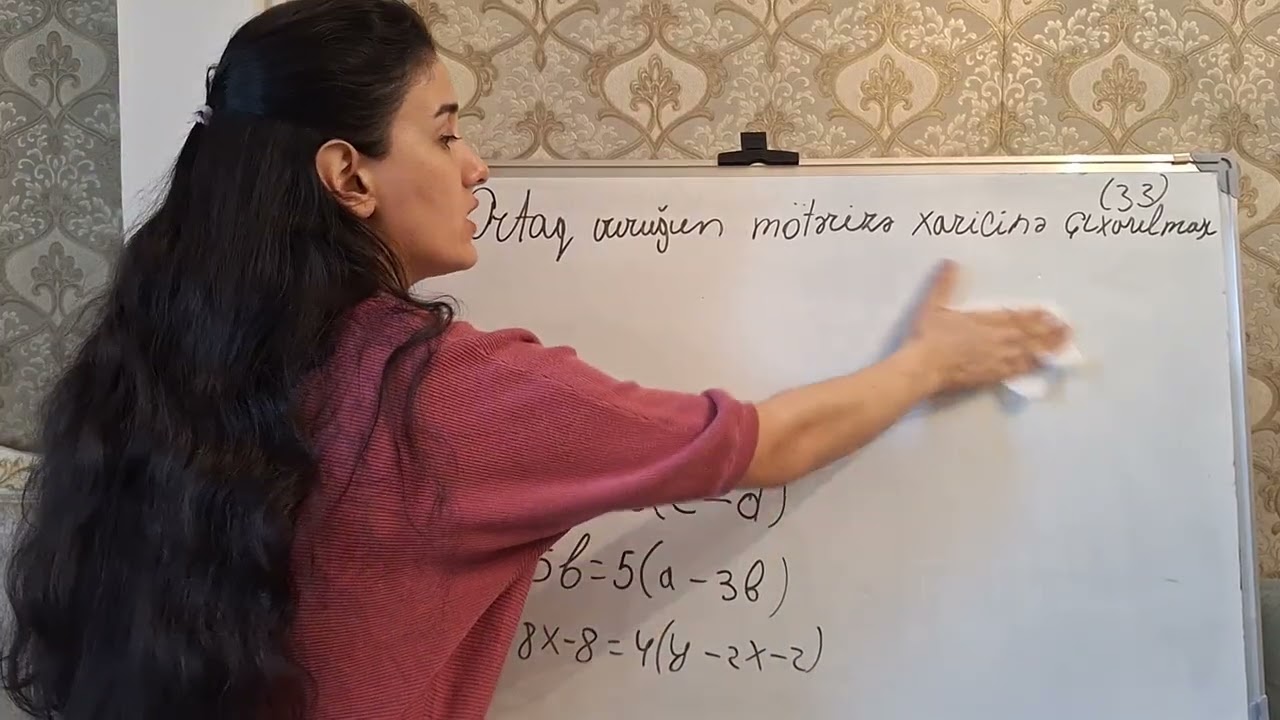 (33)
Ortaq vuruğun mötərizə xaricinə çıxarılması
(c-d)
5b=5(a-3b)
8x-8=4(y-2x-2)